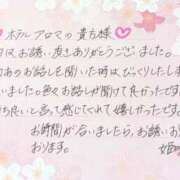 ホテルアロマの貴方様
日はお誘い頂きありがとうございました。
のあのお話しを聞いた時はびっくりしました
いました。色々お話し聞けて良かったです
ち良いと言って感じてくれてて嬉しかったです。
お時間が合いましたら、お誘いお
おります。
姫